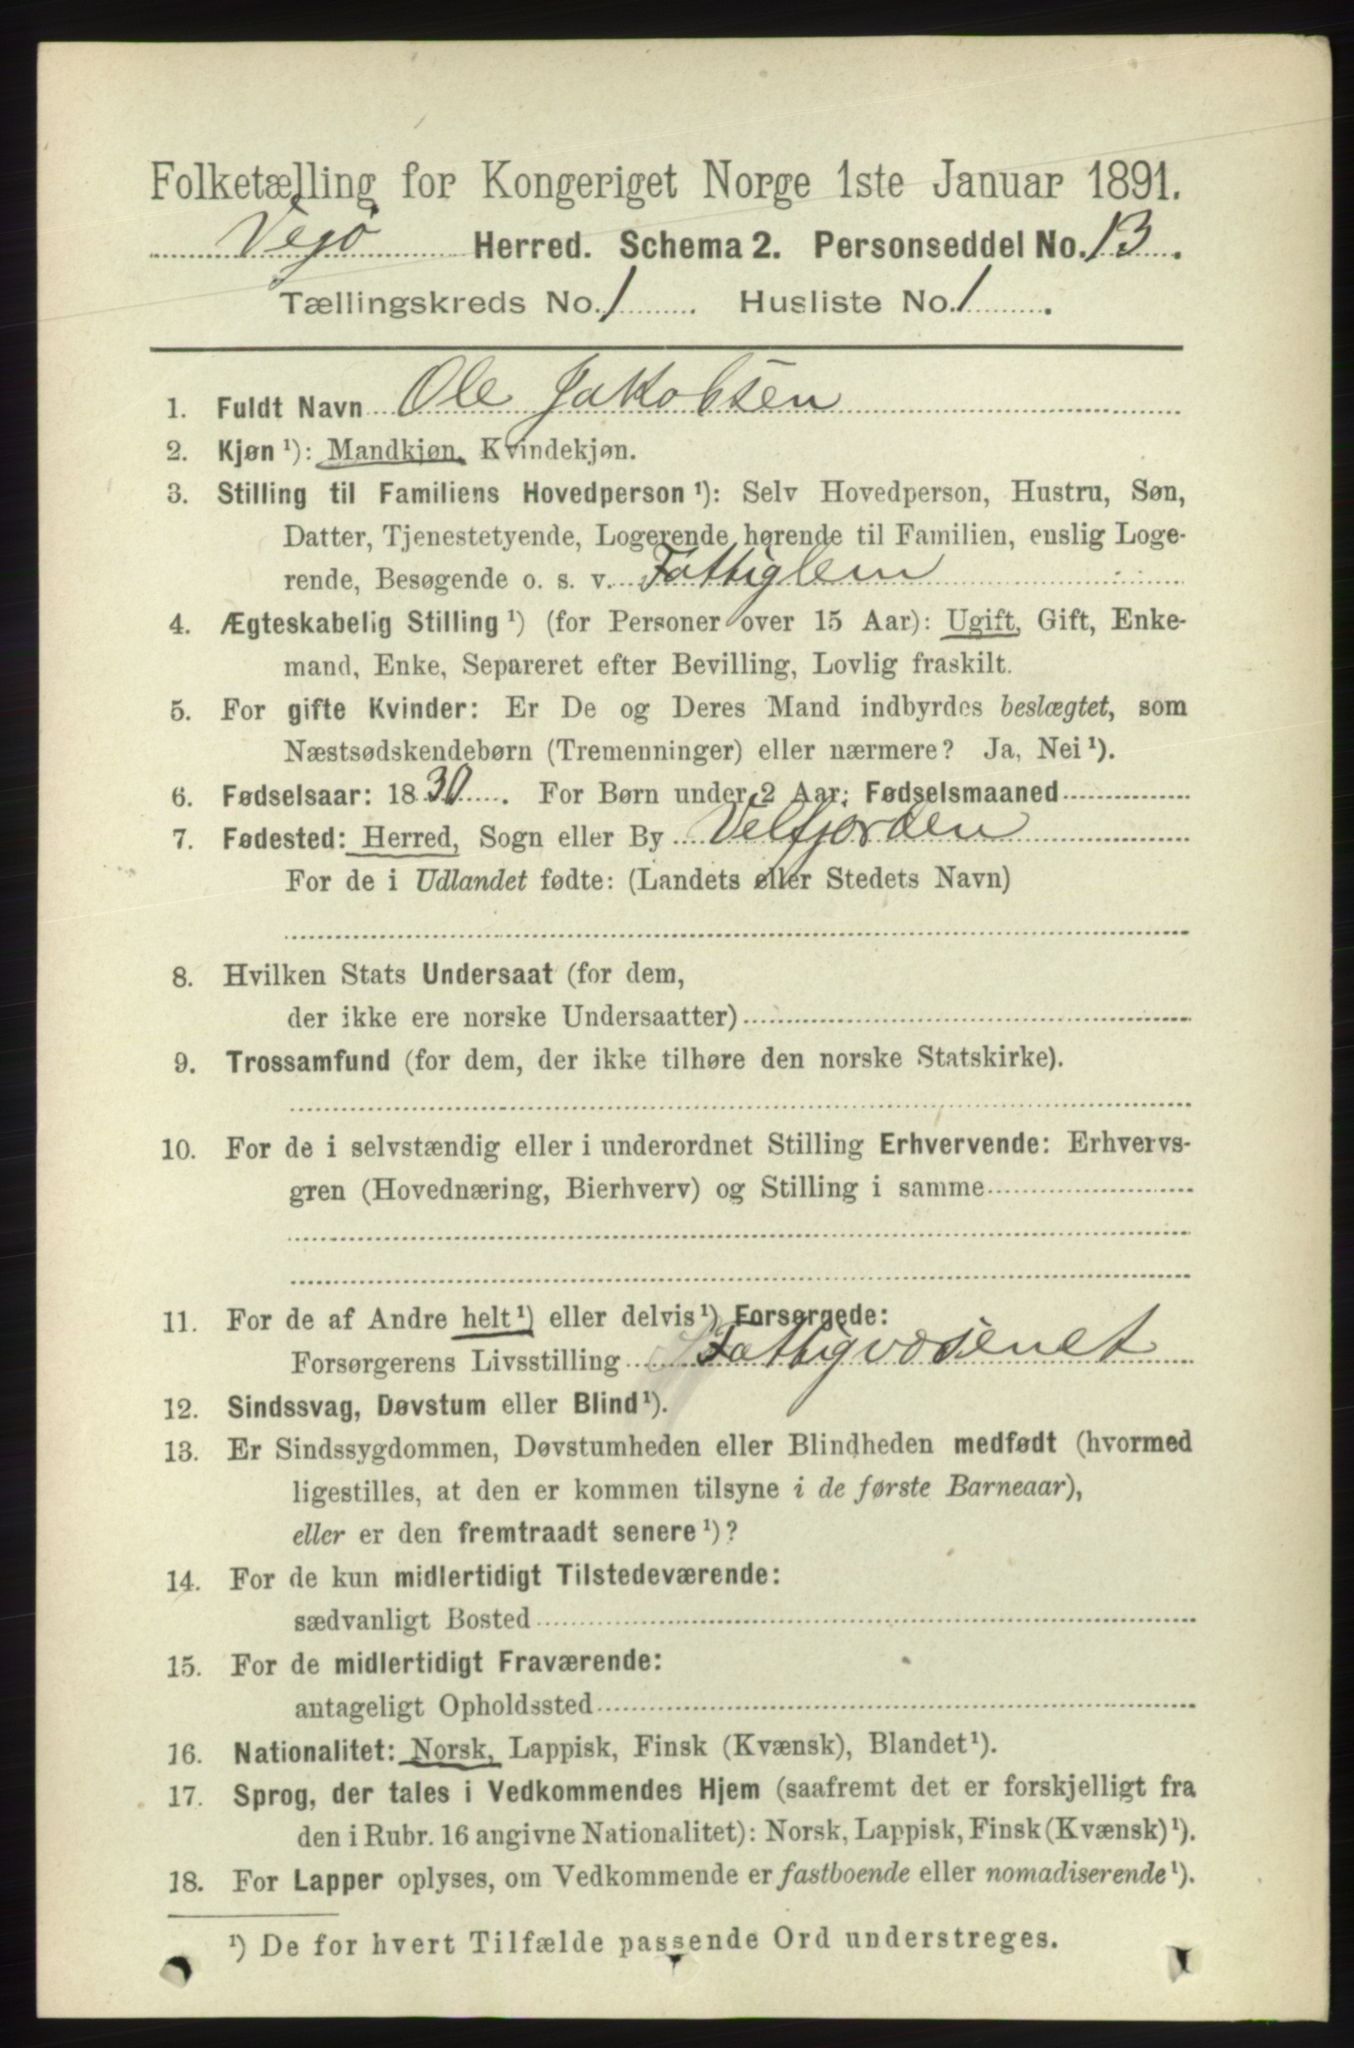 Folketælling for Kongeriget Norge 1ste Januar 1891.
Vegø Herred. Schema 2. Personseddel No. 13.
Tællingskreds No. 1. Husliste No. 1.
1. Fuldt Navn Ole Jakobsen
2. Kjøn ¹): Mandkjøn, Kvindekjøn.
3. Stilling til Familiens Hovedperson ¹): Selv Hovedperson, Hustru, Søn,
Datter, Tjenestetyende, Logerende hørende til Familien, enslig Loge-
rende, Besøgende o. s. v. Fattiglem
4. Ægteskabelig Stilling ¹) (for Personer over 15 Aar): Ugift, Gift, Enke-
mand, Enke, Separeret efter Bevilling, Lovlig fraskilt.
5. For gifte Kvinder: Er De og Deres Mand indbyrdes beslægtet, som
Næstsødskendebørn (Tremenninger) eller nærmere? Ja, Nei ¹).
6. Fødselsaar: 1830. For Børn under 2 Aar: Fødselsmaaned
7. Fødested: Herred, Sogn eller By Velfjorden
For de i Udlandet fødte: (Landets eller Stedets Navn)
8. Hvilken Stats Undersaat (for dem,
der ikke ere norske Undersaatter)
9. Trossamfund (for dem, der ikke tilhøre den norske Statskirke).
10. For de i selvstændig eller i underordnet Stilling Erhvervende: Erhvervs-
gren (Hovednæring, Bierhverv) og Stilling i samme
11. For de af Andre helt ¹) eller delvis ¹) Forsørgede:
Forsørgerens Livsstilling Fattigvæsenet
12. Sindssvag, Døvstum eller Blind ¹).
13. Er Sindssygdommen, Døvstumheden eller Blindheden medfødt (hvormed
ligestilles, at den er kommen tilsyne i de første Barneaar),
eller er den fremtraadt senere ¹)?
14. For de kun midlertidigt Tilstedeværende:
sædvanligt Bosted
15. For de midlertidigt Fraværende:
antageligt Opholdssted
16. Nationalitet: Norsk, Lappisk, Finsk (Kvænsk), Blandet ¹).
17. Sprog, der tales i Vedkommendes Hjem (saafremt det er forskjelligt fra
den i Rubr. 16 angivne Nationalitet): Norsk, Lappisk, Finsk (Kvænsk) ¹).
18. For Lapper oplyses, om Vedkommende er fastboende eller nomadiserende ¹).
¹) De for hvert Tilfælde passende Ord understreges.